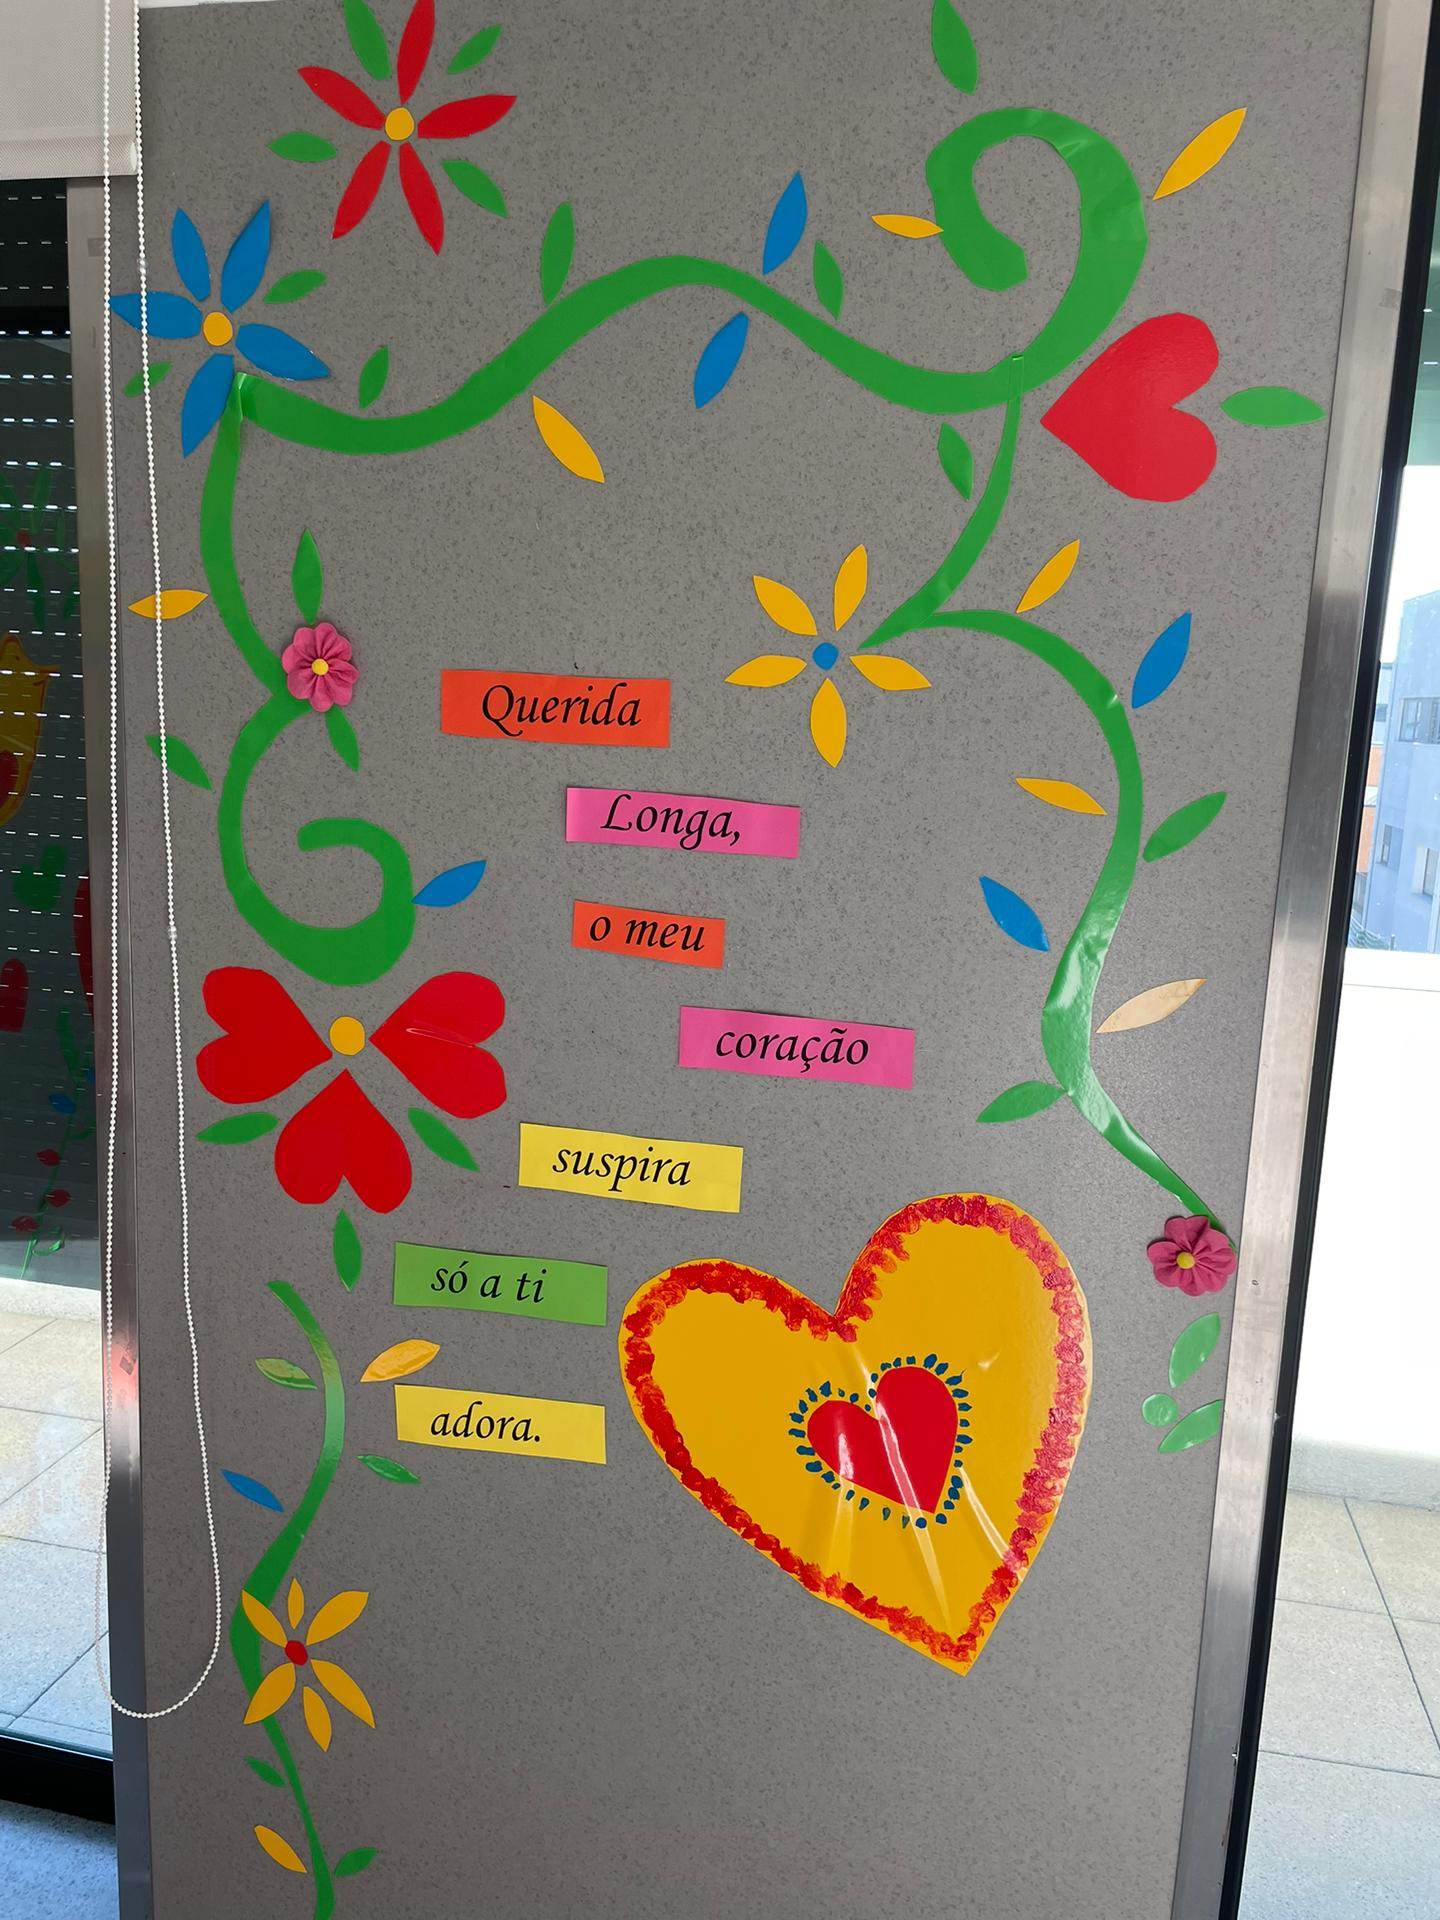 Querida
Longa,
o meu
coração
suspira
só a ti
adora.